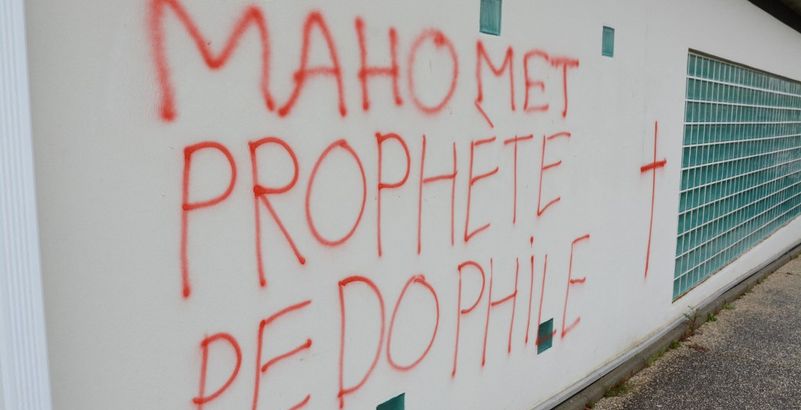 MAHOMET
PROPHÈTE
PEDOPHILE